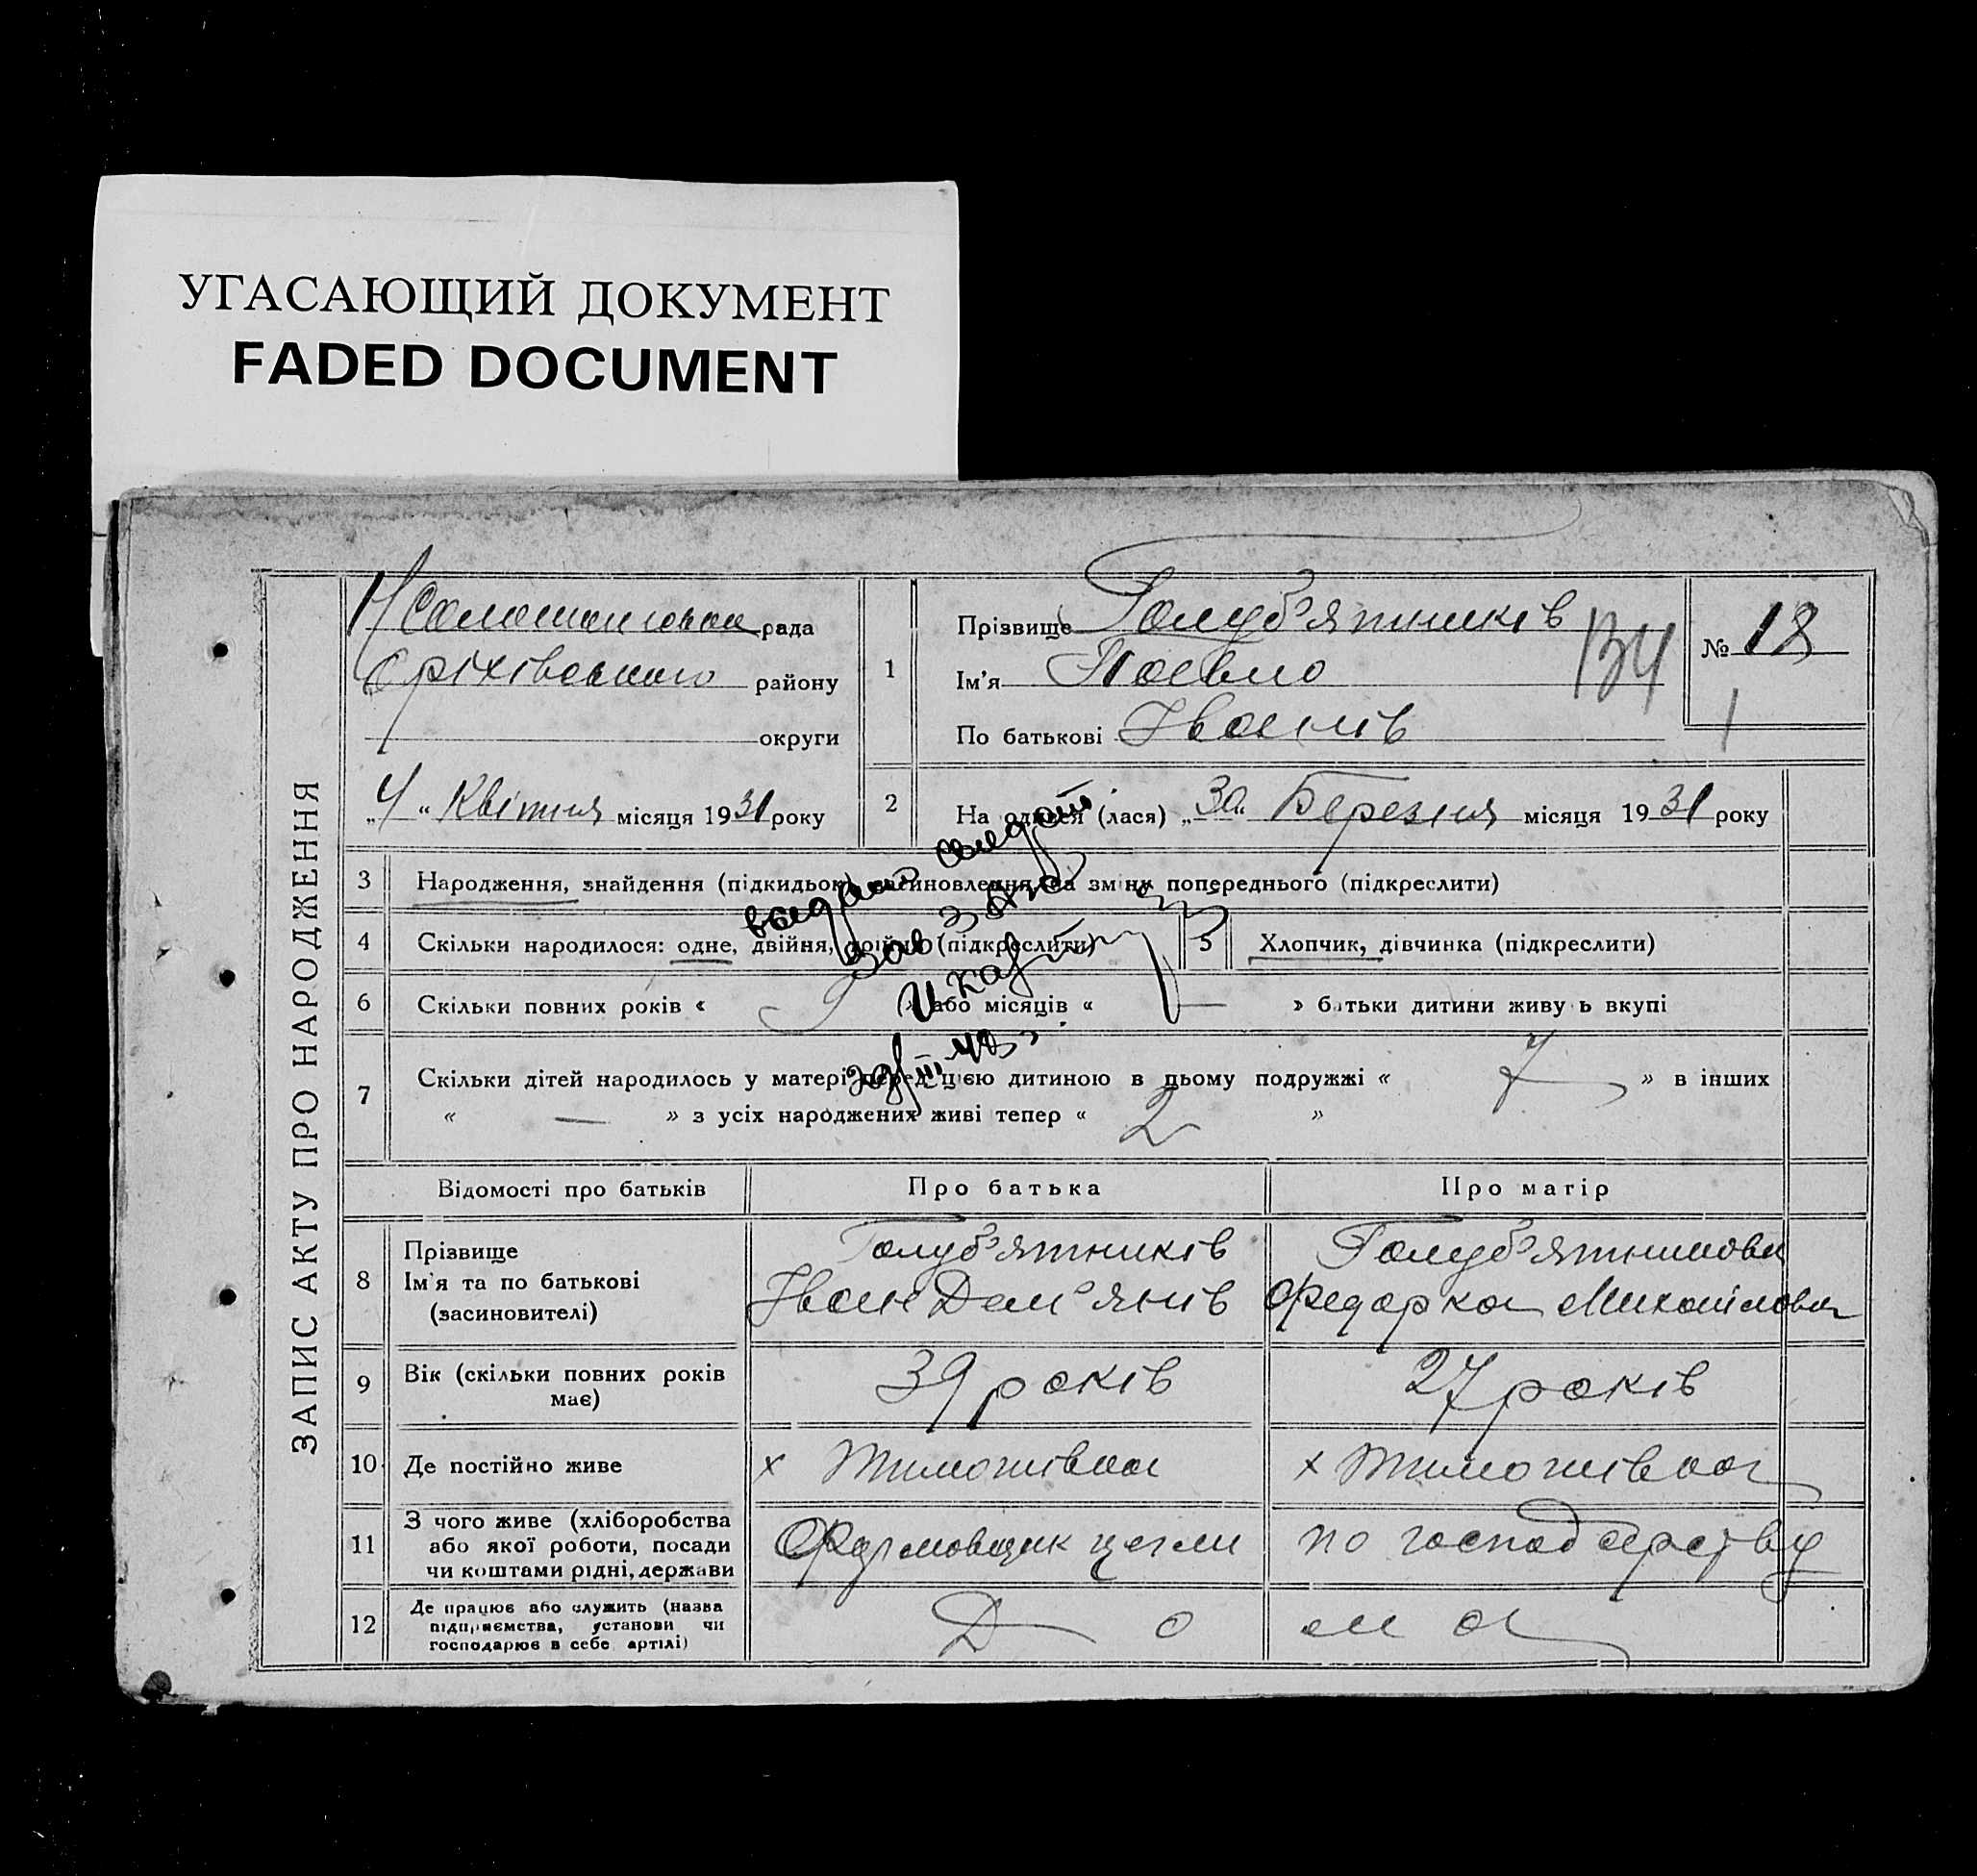 УГАСАЮЩИЙ ДОКУМЕНТ
FADED DOCUMENT
ЗАПИС АКТУ ПРО НАРОДЖЕННЯ
рада
Оріхівського району
округи
„4“ Квітня місяця 1931 року
1
Прізвище Голуб'ятників
Ім'я Павло
По батькові Іванів
134
№ 18
2
На одився (лася) „30“ Березня місяця 1931 року
3 Народження, знайдення (підкидьок) засиновлення на зміну попереднього (підкреслити)
4 Скільки народилося: одне, двійня, трійня (підкреслити) 5 Хлопчик, дівчинка (підкреслити)
6 Скільки повних років « » або місяців « — » батьки дитини живу ь вкупі
7 Скільки дітей народилось у матері перед цією дитиною в цьому подружжі « 7 » в інших
« — » з усіх народжених живі тепер « 2 »
Відомості про батьків Про батька Про матір
8 Прізвище Голуб'ятників Голуб'ятникова
Ім'я та по батькові Іван Дем'янів Федорка Михайлова
(засиновителі)
9 Вік (скільки повних років має) 39 років 27 років
10 Де постійно живе х Тимошівка х Тимошівка
11 З чого живе (хліборобства або якої роботи, посади чи коштами рідні, держави Формовщик цегли по господарству
12 Де працює або служить (назва підприємства, установи чи господарює в себе артілі) Д о м а